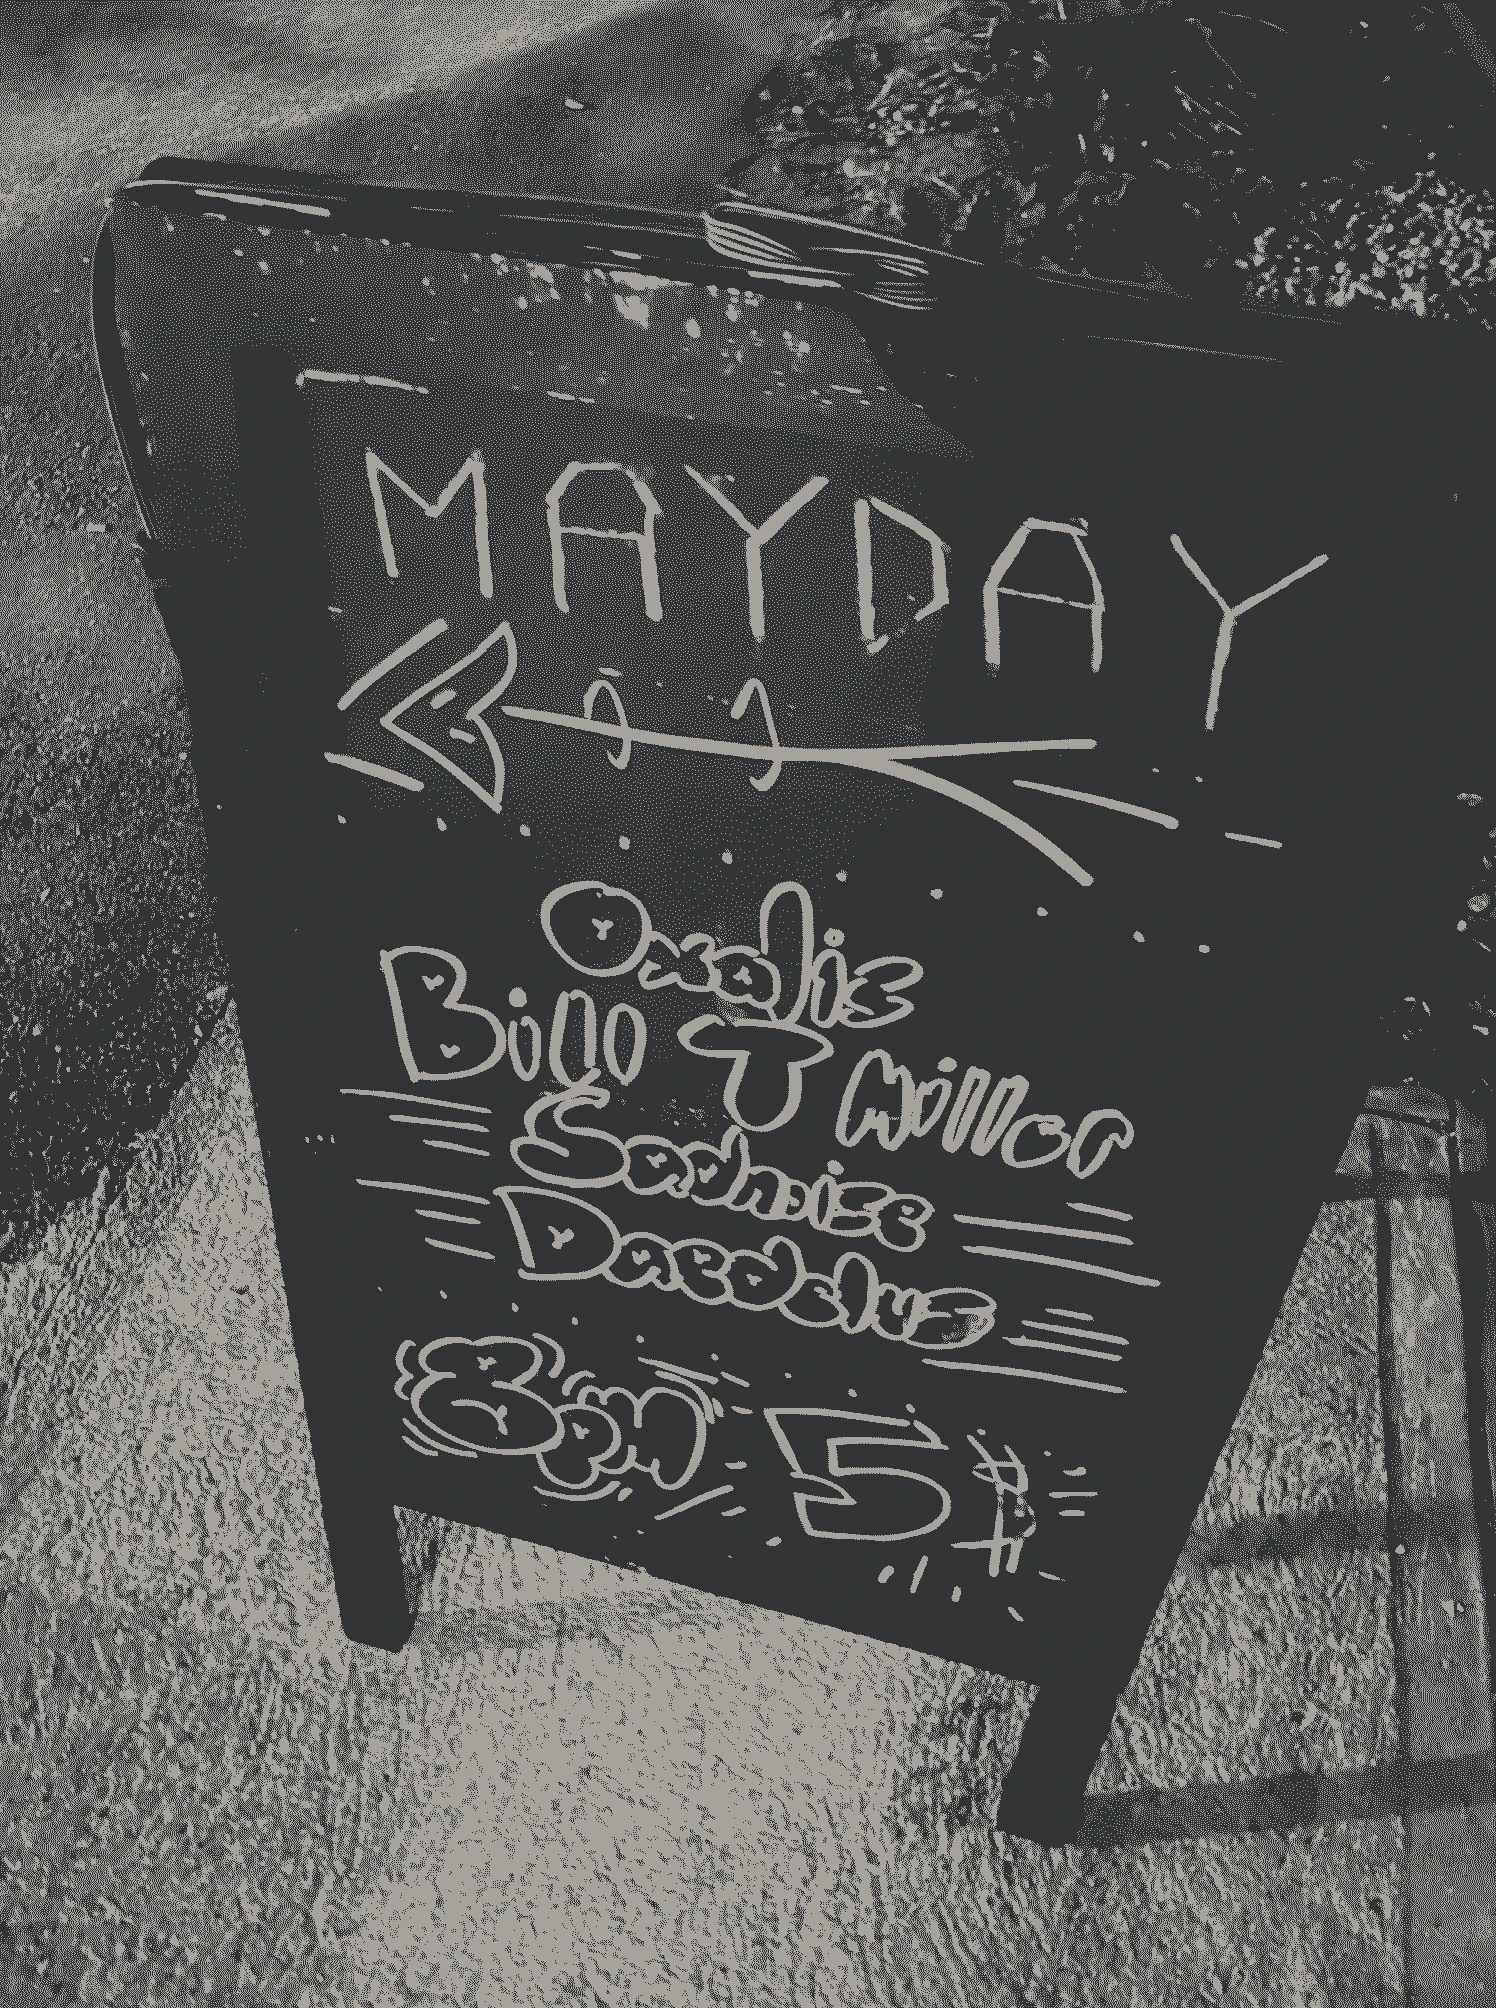 MAYDAY
Oxalis
Bill T Miller
Sadnoise
Daedelus
8pm 5$